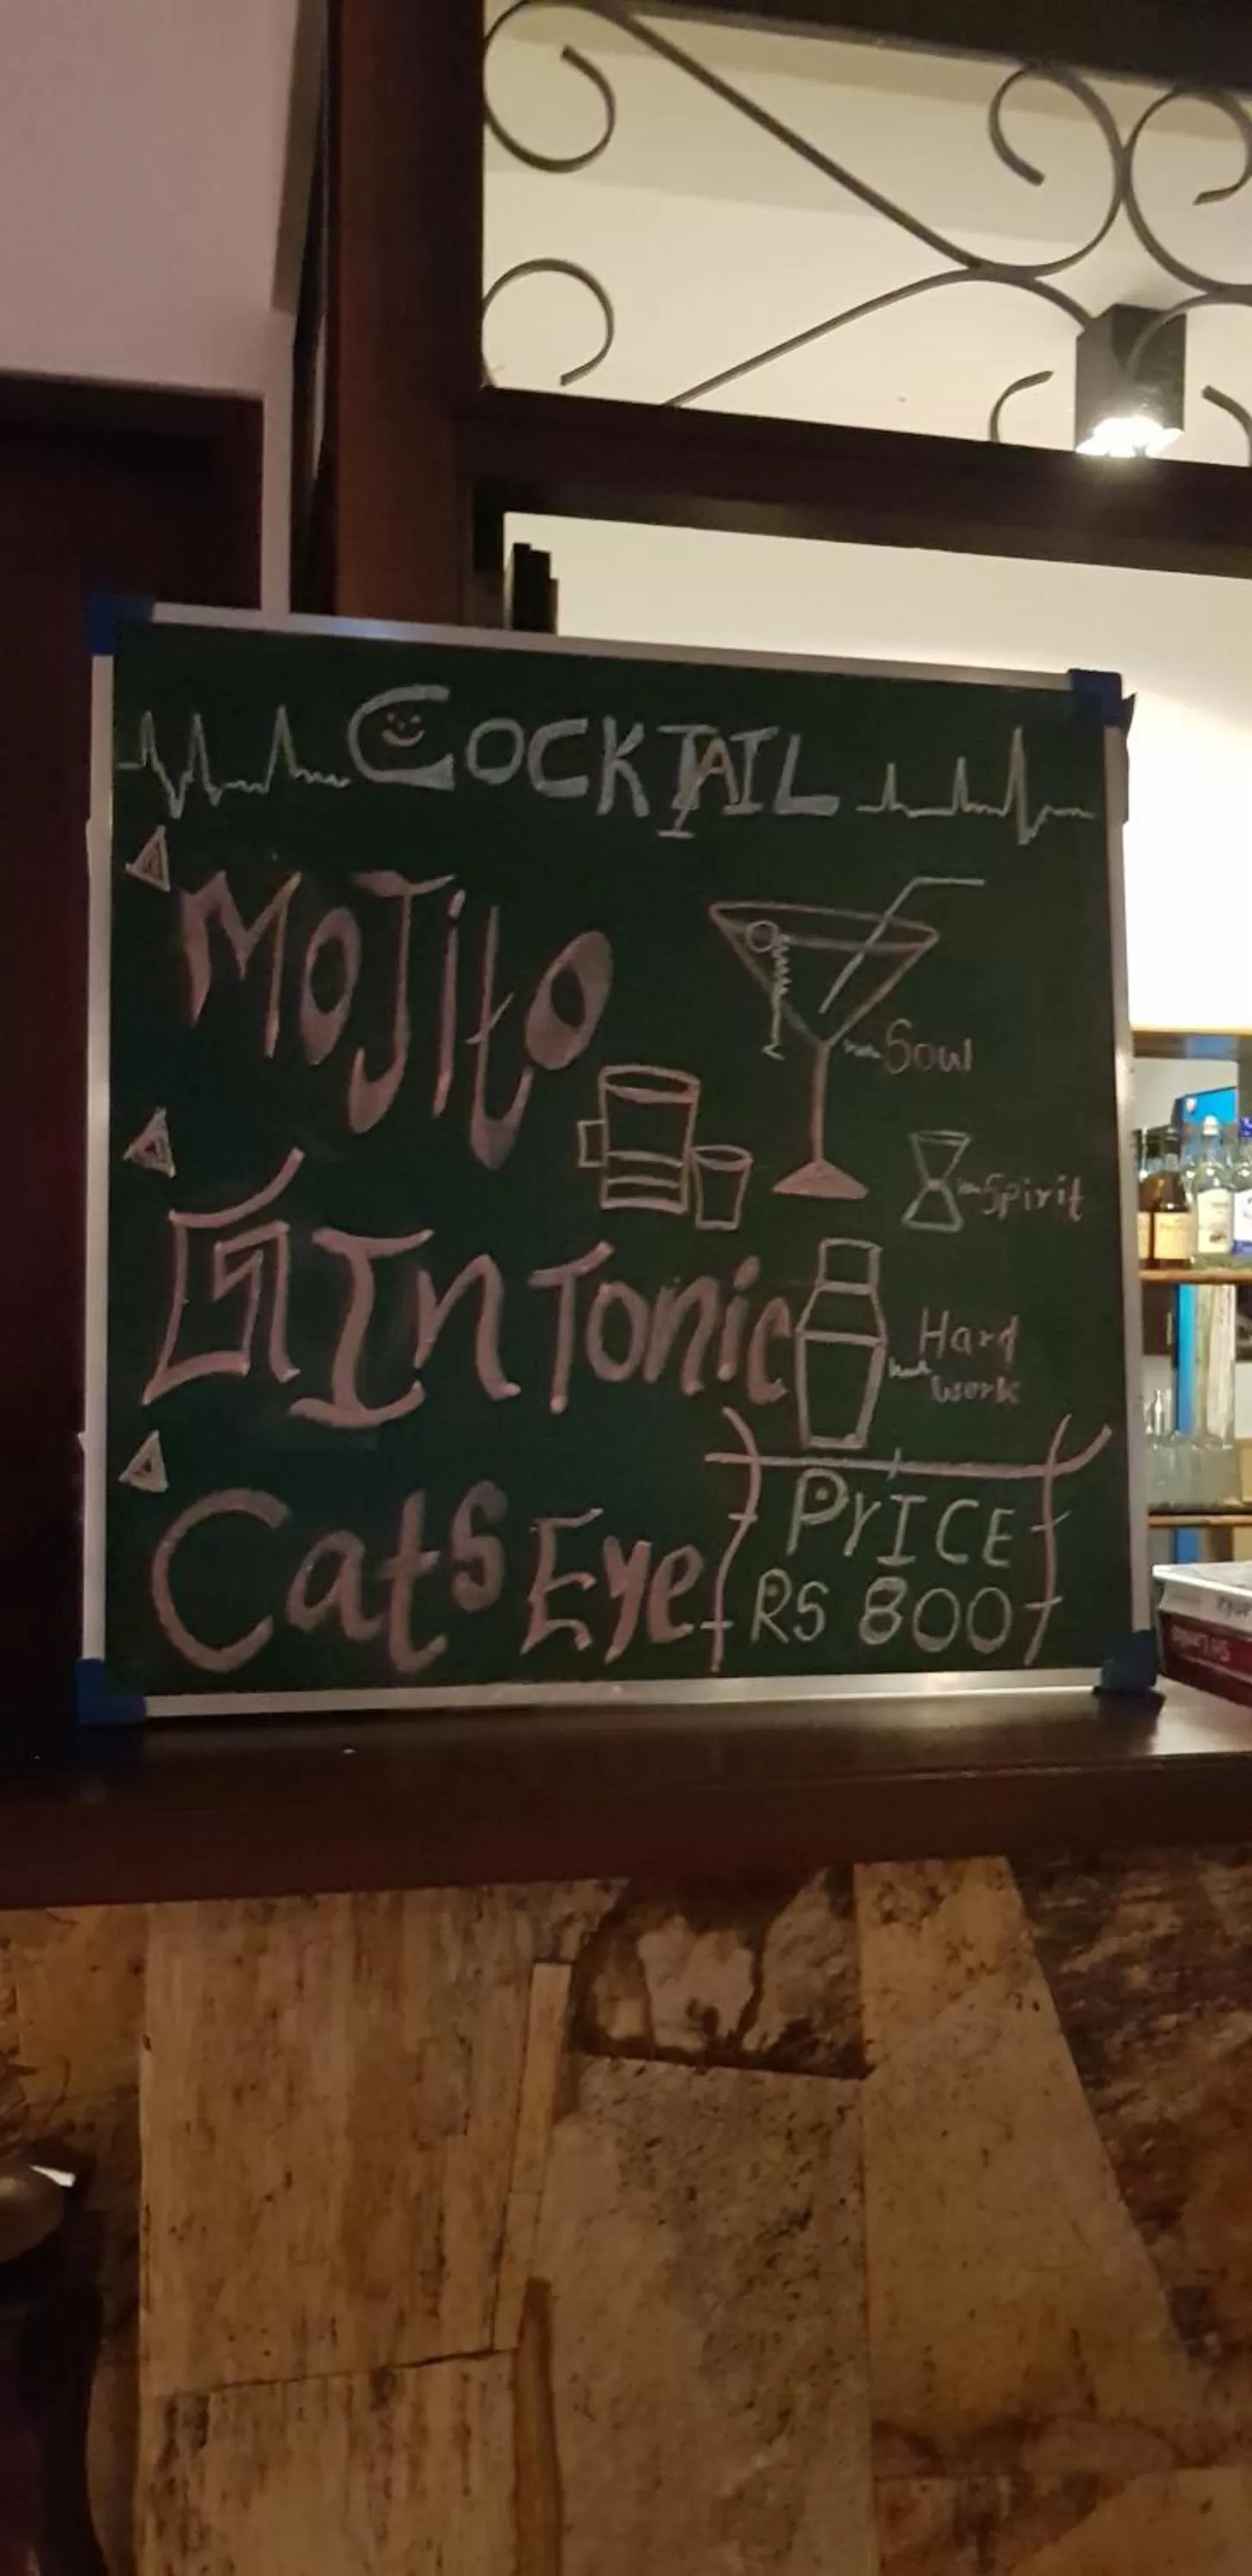 COCKTAIL
MOJito
Soul
Spirit
GIn Tonic
Hard
work
Cats Eye
PrICE
RS 800